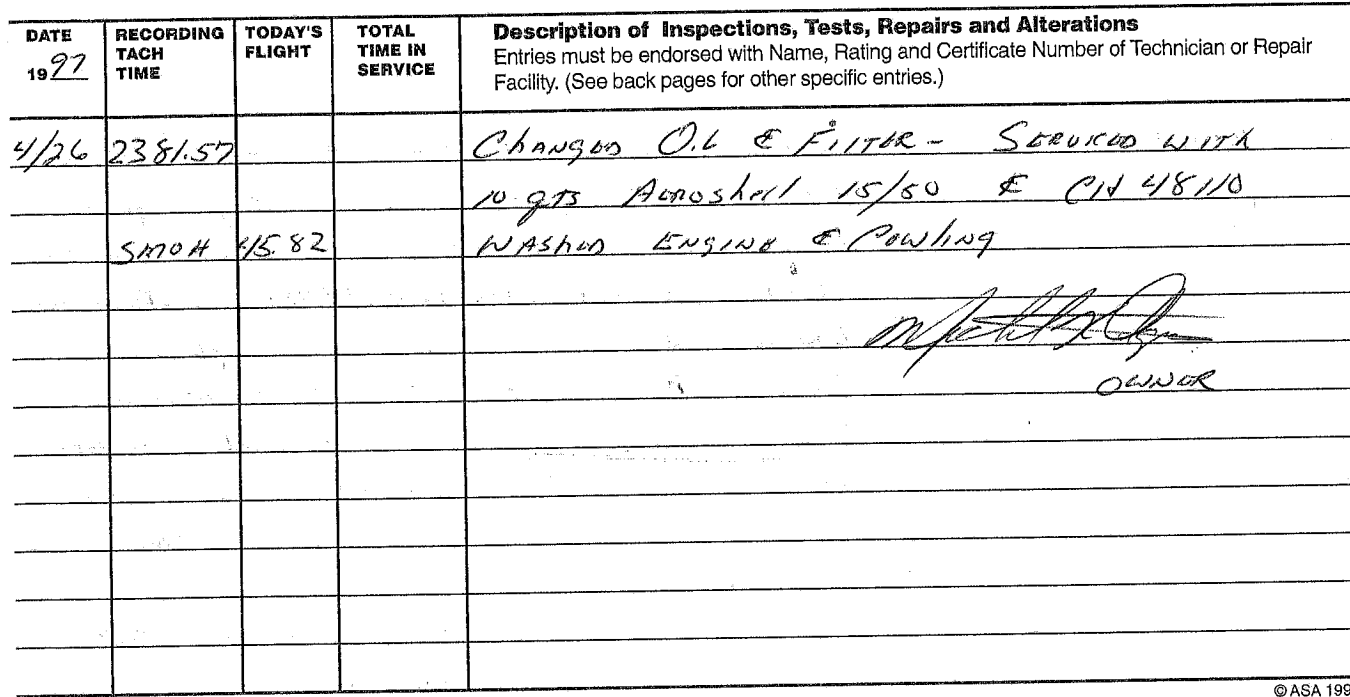 DATE 1997
RECORDING TACH TIME
TODAY'S FLIGHT
TOTAL TIME IN SERVICE
Description of Inspections, Tests, Repairs and Alterations
Entries must be endorsed with Name, Rating and Certificate Number of Technician or Repair
Facility. (See back pages for other specific entries.)
4/26 2381.57 Changed Oil & Filter - Serviced with
10 qts Aeroshell 15/50 & CH 48110
SMOH 45.82 Washed Engine & Cowling
Owner
© ASA 199